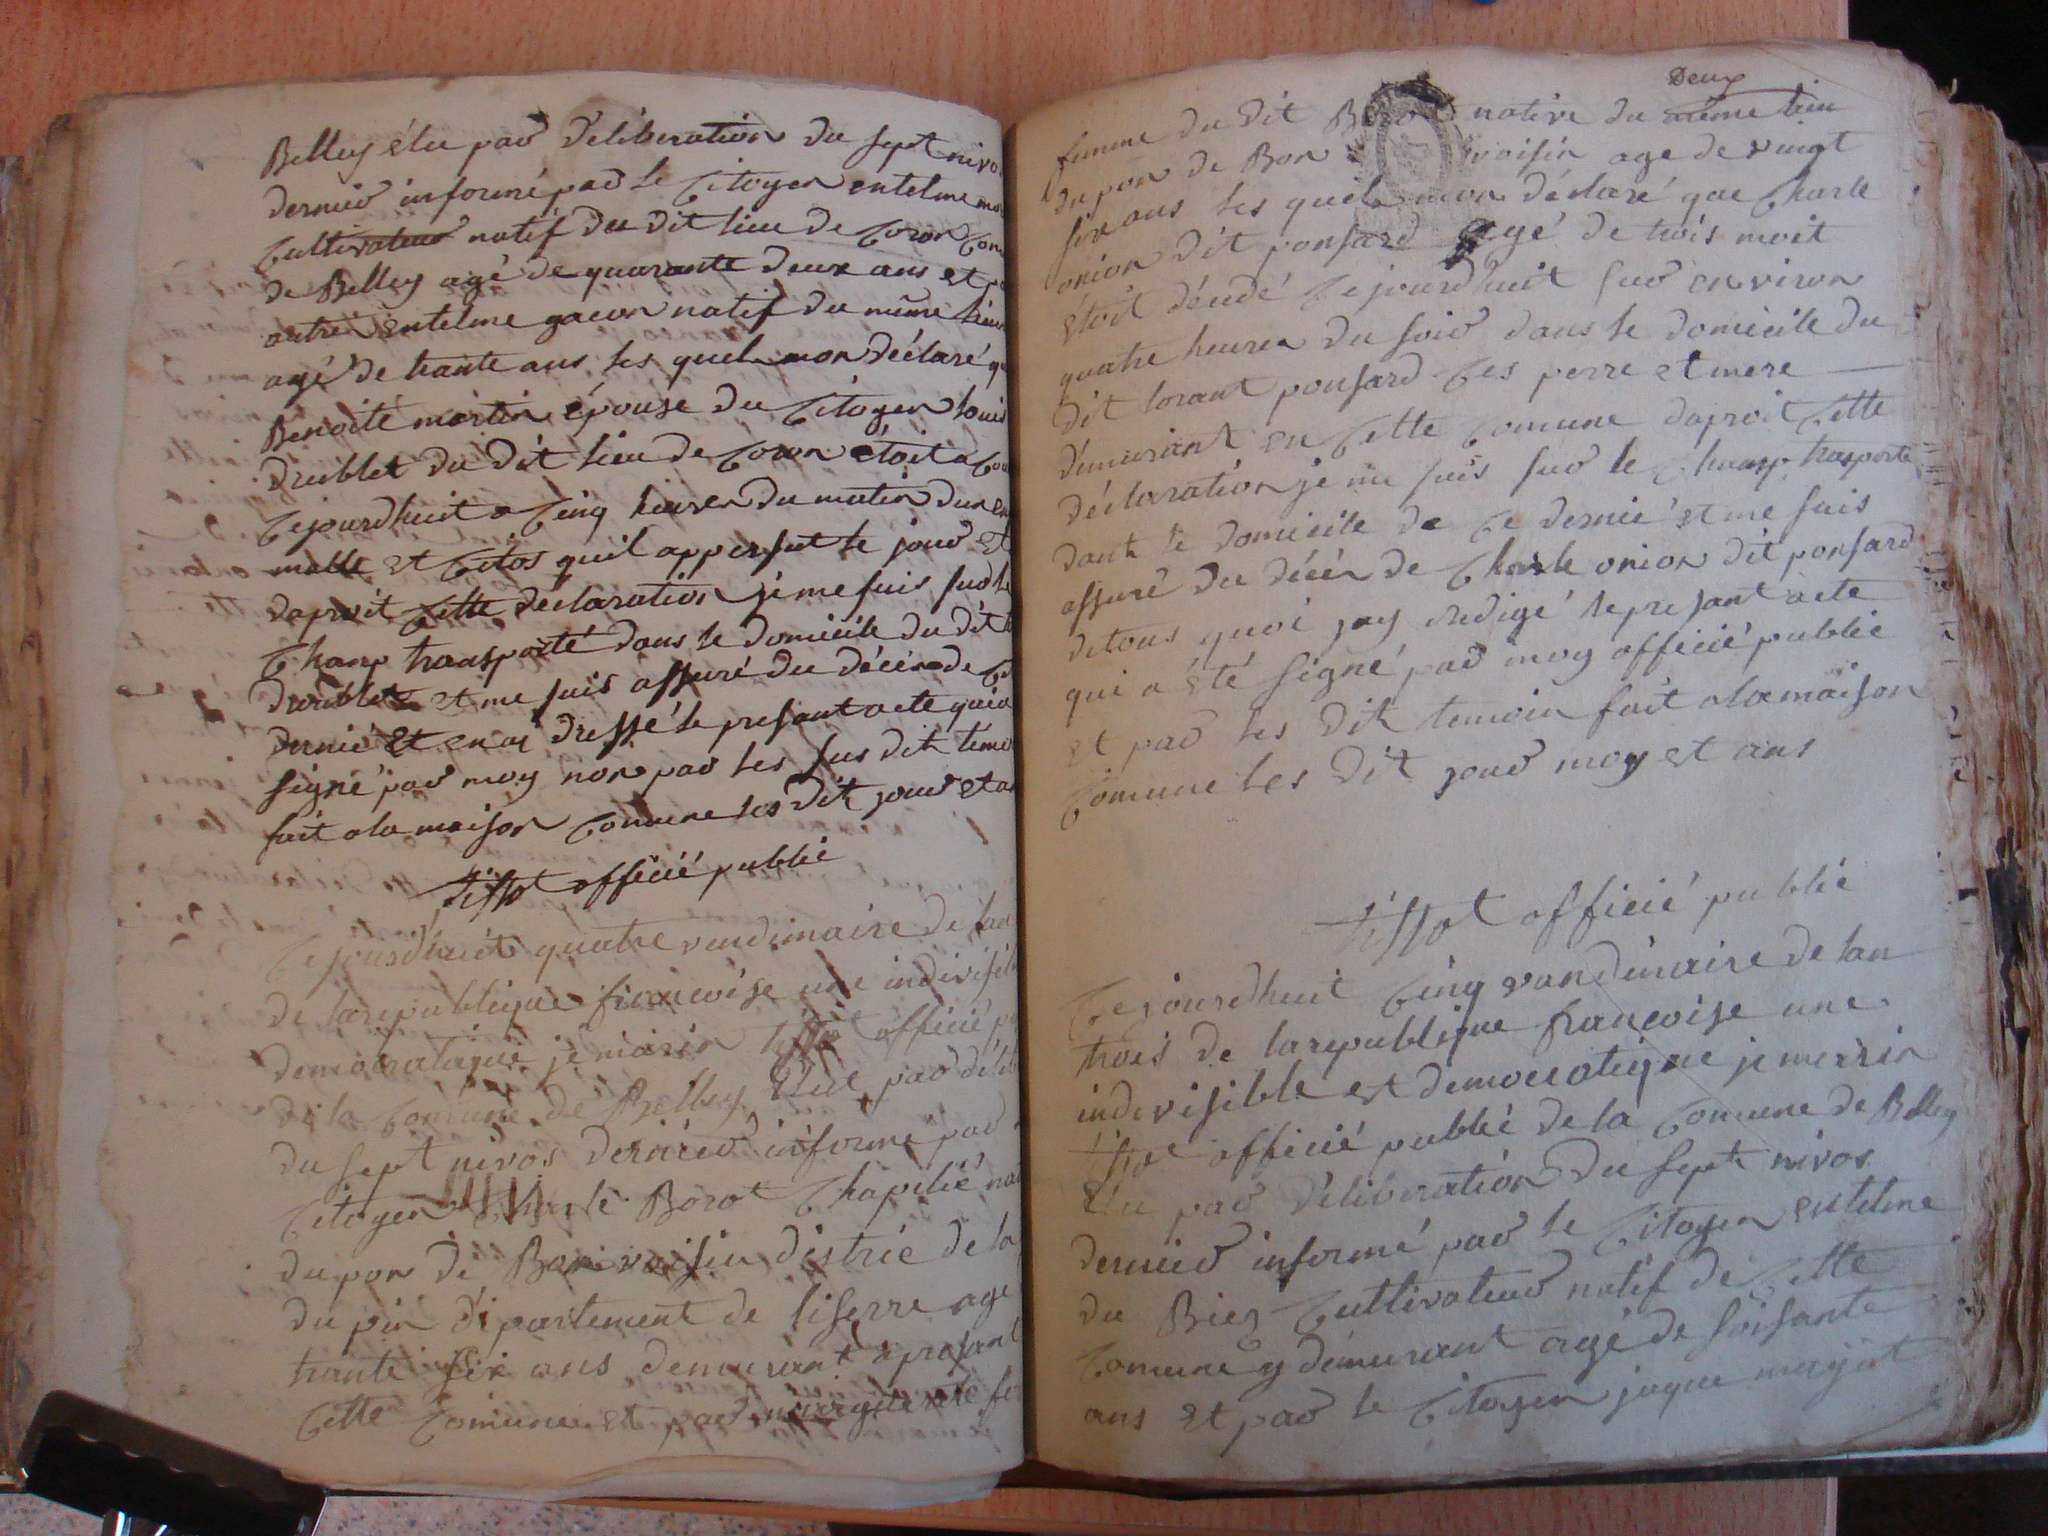 Belley élu par déliberation du sept nivo
dernier informé par le Citoyen entelme
Cultivateur natif du dit lieu de Coron
de Belley agé de quarante deux ans et
autre entelme gacon natif du même lieu
agé de trante ans les quel mon déclaré
Benoite martin épouse du Citoyen louis
Drublet du dit lieu de Coron étoit
Cejourdhuit a Cinq heures du matin dun
malle et Citos quil appersut le jour
daproit Cette declaration je me suis sur le
Champ transporté dans le domicile du dit
Drublet et me suis assuré du décés de
dernié et en ai dressé le presant acte qui a
signé par moy non par les sus dit
fait a la maison Comune les dit jour et
tissot officié publié
Cejourdhuit quatre vendimaire de lan
de la republique francoise une indivisib
democratique je marin tissot officié
de la Comune de Belley Elut par
du sept nivos dernier informé par
Citoyen Charle Borot Chapelié
du pon de Bonvoisin distric de la
du pin département de liserre age
trante six ans demurant a presant
Cette Comune et par
Deux
femme du dit Borot native du même lieu
du pon de Bon voisin age de vingt
six ans les quel mon déclaré que Charle
onion dit ponsard agé de trois moit
étoit décédé Cejourdhuit sur environ
quatre heures du soir dans le domicile du
dit lorant ponsard Ces perre et mere
démurant en Cette Comune daproit Cette
déclaration je me suis sur le Champ trasporté
dant le domicile de Ce dernié et me suis
assuré du décés de Charle onion dit ponsard
de tous quoi jay redigé le presant acte
qui a été signé par moy officié publié
et par les dit temoin fait a la maison
Comune les dit jour moy et ans
tissot officié publié
Cejourdhuit Cinq vandimaire de lan
trois de la republique francoise une
indevisible et democratique je merrin
tissot officié publié de la Comune de Belley
Elu par déliberation du sept nivos
dernier informé par le Citoyen entelme
du Biez Cultivateur natif de Cette
Comune y démurant agé de soisante
ans et par le Citoyen jaque